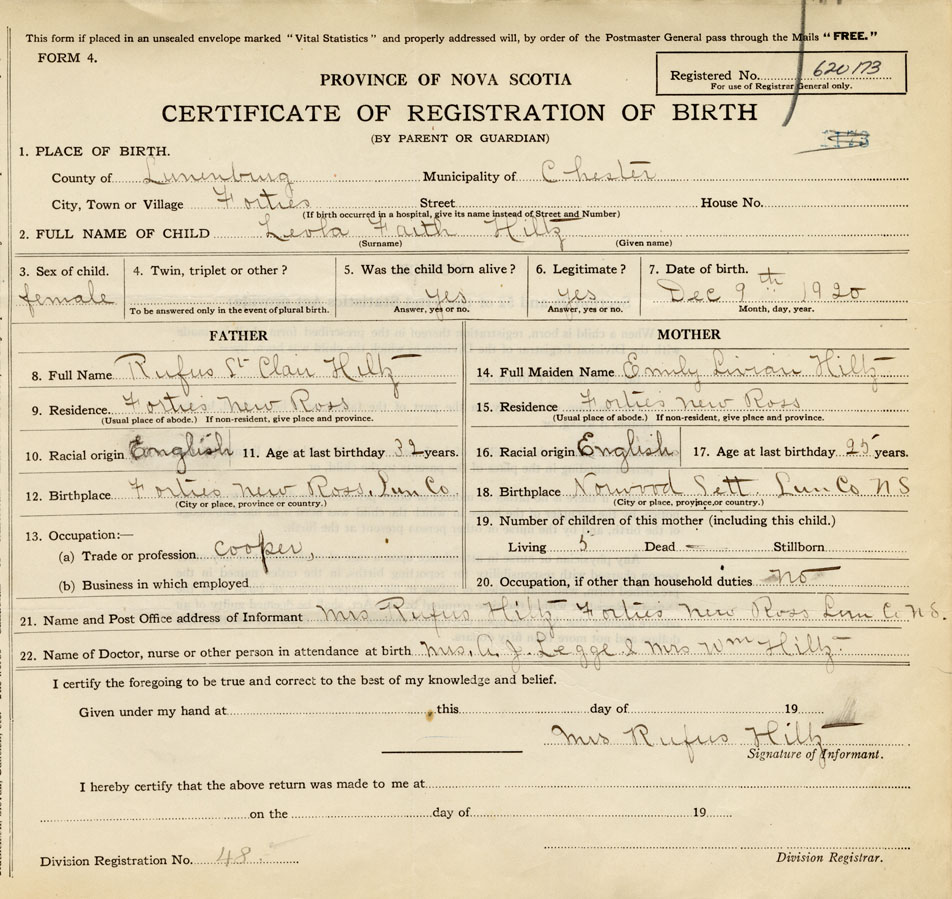 This form if placed in an unsealed envelope marked "Vital Statistics" and properly addressed will, by order of the Postmaster General pass through the Mails "FREE."
FORM 4.
PROVINCE OF NOVA SCOTIA
Registered No. 620173
For use of Registrar General only.
CERTIFICATE OF REGISTRATION OF BIRTH
(BY PARENT OR GUARDIAN)
1. PLACE OF BIRTH.
County of Lunenburg Municipality of Chester
City, Town or Village Forties Street House No.
(If birth occurred in a hospital, give its name instead of Street and Number)
2. FULL NAME OF CHILD Leola Faith Hiltz
(Surname) (Given name)
3. Sex of child. 4. Twin, triplet or other? 5. Was the child born alive? 6. Legitimate? 7. Date of birth.
female yes yes Dec 9th 1920
To be answered only in the event of plural birth. Answer, yes or no. Answer, yes or no. Month, day, year.
FATHER
8. Full Name Rufus St Clair Hiltz
9. Residence. Forties New Ross
(Usual place of abode.) If non-resident, give place and province.
10. Racial origin English 11. Age at last birthday 32 years.
12. Birthplace Forties New Ross. Lun Co.
(City or place, province or country.)
13. Occupation:—
(a) Trade or profession cooper,
(b) Business in which employed
MOTHER
14. Full Maiden Name Emily Livian Hiltz
15. Residence Forties New Ross
(Usual place of abode.) If non-resident, give place and province.
16. Racial origin English 17. Age at last birthday 25 years.
18. Birthplace Norwood Sett. Lun Co N S
(City or place, province, or country.)
19. Number of children of this mother (including this child.)
Living 5 Dead — Stillborn
20. Occupation, if other than household duties no
21. Name and Post Office address of Informant Mrs Rufus Hiltz Forties New Ross Lun Co N S.
22. Name of Doctor, nurse or other person in attendance at birth Mrs. A. J. Legge & Mrs Wm Hiltz
I certify the foregoing to be true and correct to the best of my knowledge and belief.
Given under my hand at this day of 19
Mrs Rufus Hiltz
Signature of Informant.
I hereby certify that the above return was made to me at
on the day of 19
Division Registration No. 48.
Division Registrar.